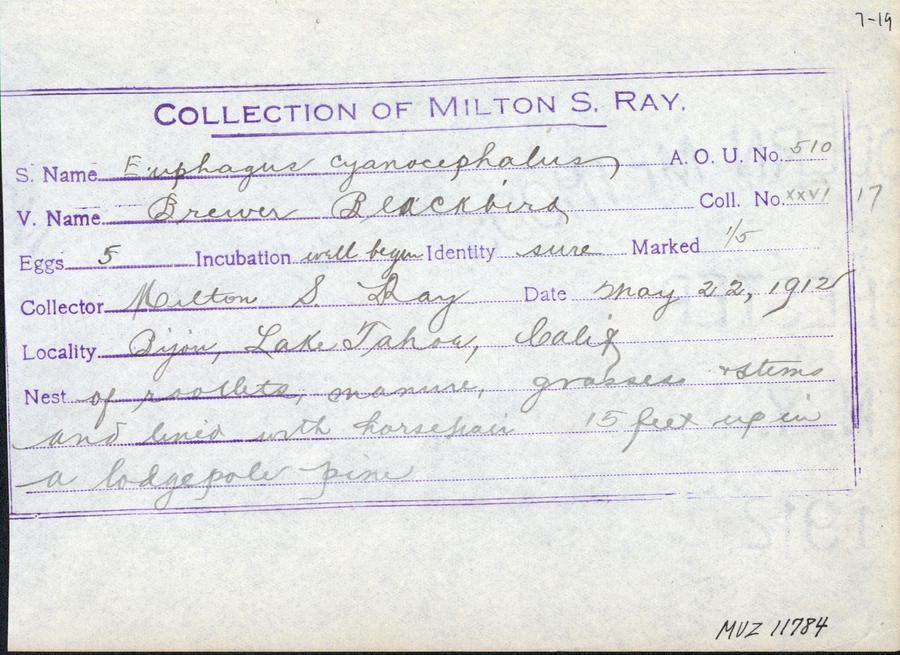 7-19
COLLECTION OF MILTON S. RAY.
S. Name Euphagus cyanocephalus A. O. U. No. 510
V. Name Brewer Blackbird Coll. No. XXVI 17
Eggs 5 Incubation well begun Identity sure Marked 1/5
Collector Milton S Ray Date May 22, 1912
Locality Bijou, Lake Tahoe, Calif
Nest of rootlets, manure, grasses & stems
and lined with horsehair 15 feet up in
a lodgepole pine
MVZ 11784